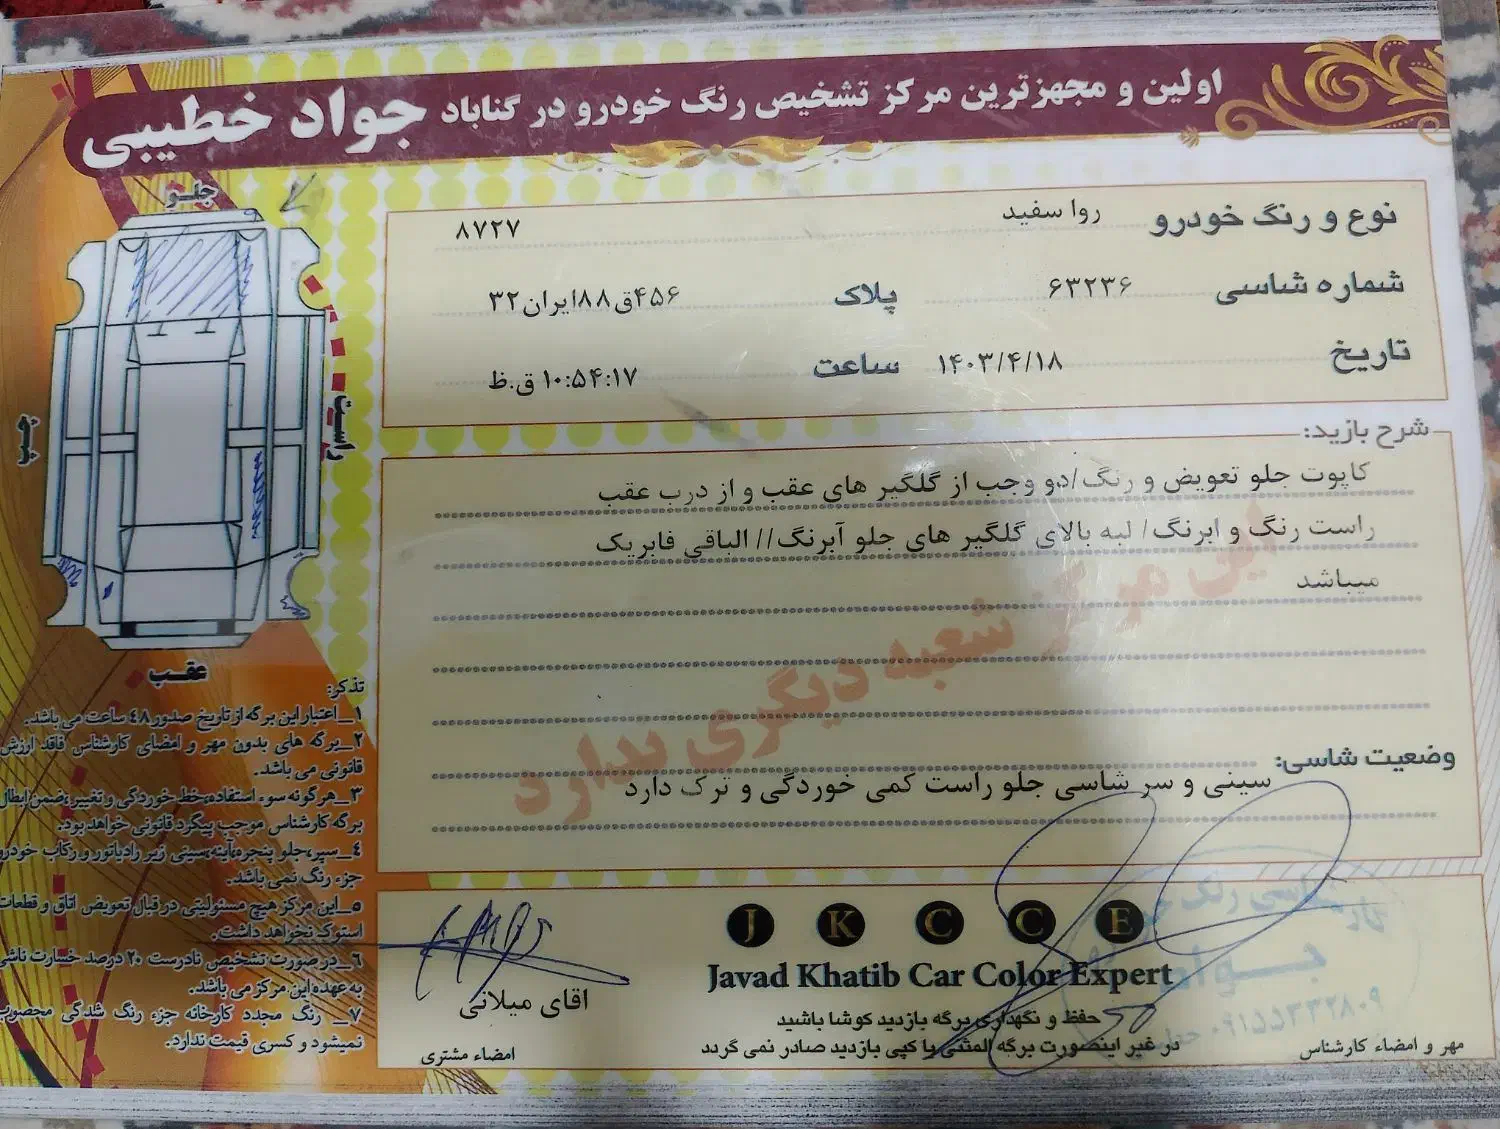 اولین و مجهزترین مرکز تشخیص رنگ خودرو در گناباد جواد خطیبی
جلو
راست
چپ
عقب
نوع و رنگ خودرو روا سفید ۸۷۲۷
شماره شاسی ۶۳۲۳۶ پلاک ۴۵۶ق۸۸ایران۳۲
تاریخ ۱۴۰۳/۴/۱۸ ساعت ۱۰:۵۴:۱۷ ق.ظ
شرح بازید:
کاپوت جلو تعویض و رنگ/دو وجب از گلگیر های عقب و از درب عقب
راست رنگ و ابرنگ/ لبه بالای گلگیر های جلو آبرنگ// الباقی فابریک
میباشد
این مرکز شعبه دیگری ندارد
وضعیت شاسی:
سینی و سر شاسی جلو راست کمی خوردگی و ترک دارد
تذکر:
۱_اعتبار این برگه از تاریخ صدور ٤٨ ساعت می باشد.
۲_برگه های بدون مهر و امضای کارشناس فاقد ارزش
قانونی می باشد.
۳_هرگونه سوء استفاده،خط خوردگی و تغییر،ضمن ابطال
برگه کارشناس موجب پیگرد قانونی خواهد بود.
٤_سپر،جلو پنجره،آینه،سینی زیر رادیاتور و رکاب خودرو
جزء رنگ نمی باشد.
۵_این مرکز هیچ مسئولیتی در قبال تعویض اتاق و قطعات
استوک نخواهد داشت.
۶_در صورت تشخیص نادرست ۲۰ درصد خسارت ناشی
به عهده این مرکز می باشد.
۷_ رنگ مجدد کارخانه جزء رنگ شدگی محصوب
نمیشود و کسری قیمت ندارد.
J K C C E
Javad Khatib Car Color Expert
حفظ و نگهداری برگه بازدید کوشا باشید
در غیر اینصورت برگه المثنی یا کپی بازدید صادر نمی گردد
اقای میلانی
امضاء مشتری
کارشناسی رنگ
جواد
۰۹۱۵۵۳۳۲۸۰۹
مهر و امضاء کارشناس